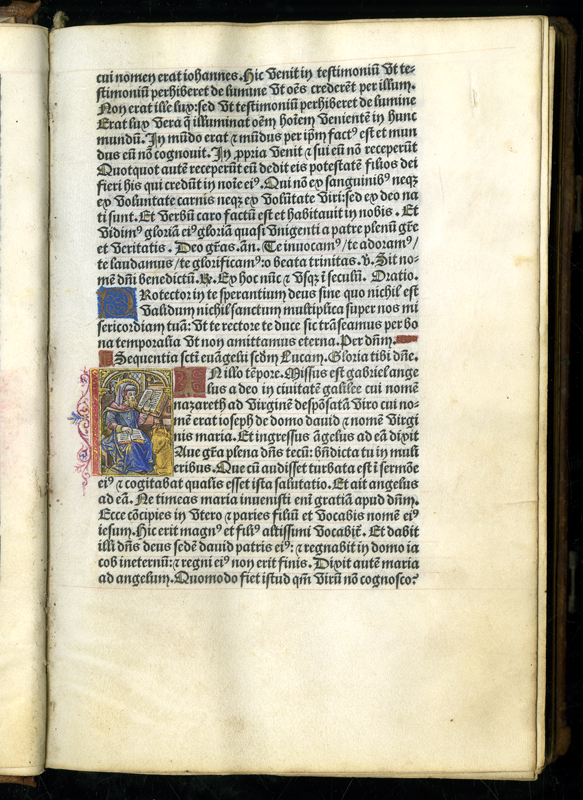 cui nomen erat iohannes. Hic venit in testimoniū vt te-
stimoniū perhiberet de lumine vt oēs crederēt per illum.
Non erat ille lux: sed vt testimoniū perhiberet de lumine
Erat lux vera q̄ illuminat oēm hoīem venientē in hunc
mundū. In mūdo erat ⁊ mūdus per ip̄m factꝰ est et mun
dus eū nō cognouit. In ꝓpria venit ⁊ sui eū nō receperūt
Quotquot autē receperūt eū dedit eis potestatē filios dei
fieri his qui credūt in noīe eiꝰ. Qui nō ex sanguinibꝰ neqꝫ
ex voluntate carnis neqꝫ ex volūtate viri: sed ex deo na
ti sunt. Et verbū caro factū est et habitauit in nobis. Et
vidimꝰ gloriā eiꝰ gloriā quasi vnigenti a patre plenū gr̄e
et veritatis. Deo gr̄as. añ. Te inuocamꝰ/ te adoramꝰ/
te laudamus/ te glorificamꝰ: o beata trinitas. ℣. Sit no-
mē dn̄i benedictū. ℟. Ex hoc nūc ⁊ vsqꝫ ī seculū. Oratio.
PRotector in te sperantium deus sine quo nichil est
validum nichil sanctum multiplica super nos mi
sericordiam tuā: vt te rectore te duce sic trāseamus per bo
na temporalia vt non amittamus eterna. Per dn̄m.
Sequentia sctī euāgelii scd̄m Lucam. Gloria tibi dn̄e.
IN illo tēpore. Missus est gabriel ange
lus a deo in ciuitatē galilee cui nomē
nazareth ad virginē despōsatā viro cui no-
mē erat ioseph de domo dauid ⁊ nomē virgi
nis maria. Et ingressus āgelus ad eā dixit
Aue gr̄a plena dn̄s tecū: bn̄dicta tu in muli
eribus. Que cū audisset turbata est ī sermōe
eiꝰ ⁊ cogitabat qualis esset ista salutatio. Et ait angelus
ad eā. Ne timeas maria inuenisti eni gratiā apud dn̄m.
Ecce cōcipies in vtero ⁊ paries filiū et vocabis nomē eiꝰ
iesum. Hic erit magnꝰ et filiꝰ altissimi vocabit̄. Et dabit
illi dn̄s deus sedē dauid patris eiꝰ: ⁊ regnabit in domo ia
cob in eternū: ⁊ regni eiꝰ non erit finis. Dixit autē maria
ad angelum. Quomodo fiet istud qm̄ virū nō cognosco?